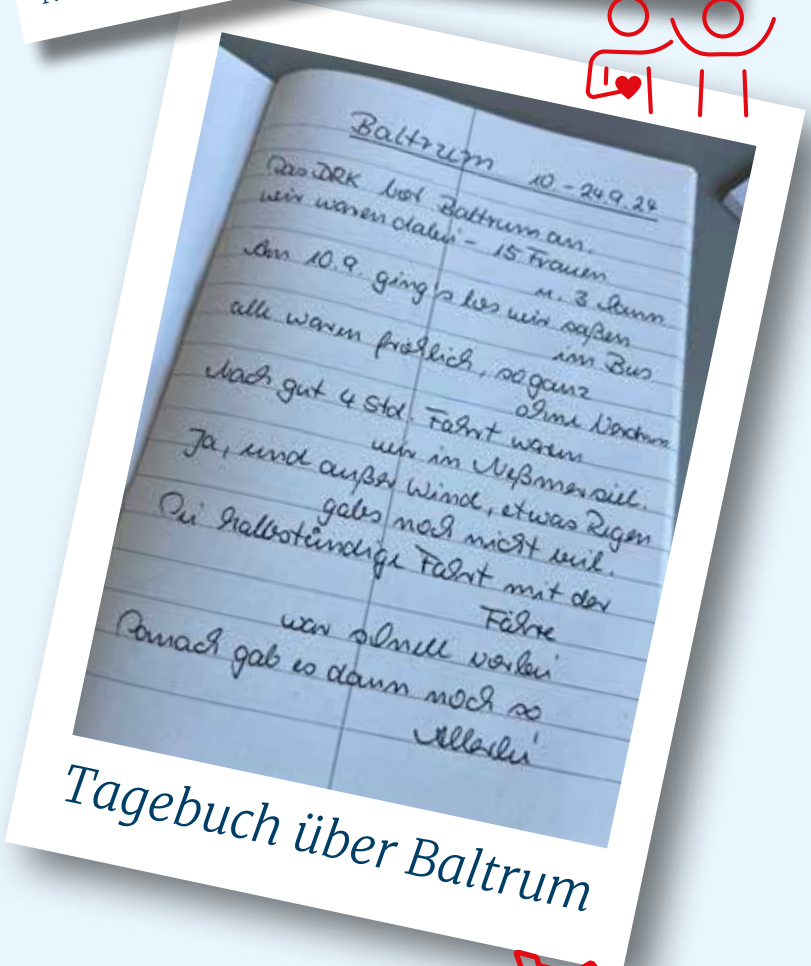 Baltrum 10. - 24.9.24
Das DRK bot Baltrum an.
wir waren dabei - 15 Frauen
u. 3 Mann
Am 10.9. ging's los wir saßen
im Bus
alle waren fröhlich, so ganz
ohne
Nach gut 4 Std. Fahrt waren
wir in Neßmersiel.
Ja, und außer Wind, etwas Regen
gabs noch nicht viel.
Die halbstündige Fahrt mit der
Fähre
war schnell vorbei
Danach gab es dann noch so
Allerlei
Tagebuch über Baltrum